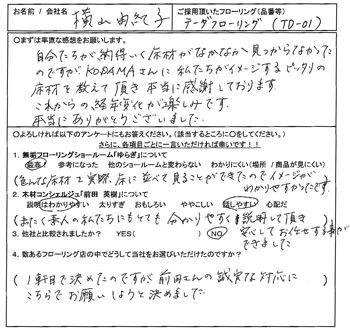 お名前 / 会社名
横山由紀子
ご採用頂いたフローリング(品番等)
チークフローリング (TD-01)
〇まずは率直な感想をお願いします。
自分たちが納得いく床材がなかなか見つからなかった
のですが KODAMAさんに私たちがイメージするピッタリの
床材を教えて頂き本当に感謝しております。
これからの経年変化が楽しみです。
本当にありがとうございました。
〇よろしければ以下のアンケートにもお答えください。(該当するところに〇をしてください。)
さらに、各項目ごとに一言いただければ幸いです!!
1. 無垢フローリングショールーム「ゆらぎ」について
最高! 参考になった 他のショールームと変わらない わかりにくい(場所 / 商品が見にくい)
(色んな床材を実際床に並べて見ることができたのでイメージが
わかりやすかったです。)
2. 木材コンシェルジュ「前田 英樹」について
説明はわかりやすい 太りすぎ おもしろい ややこしい 話しやすい 心配だ
(まったく素人の私たちにもとても分かりやすく説明して頂き
安心してお任せする事が
できました)
3. 他社と比較されましたか? YES( ) NO
4. 数あるフローリング店の中でどうして当社をお選びいただけたのですか?
(1軒目で決めたのですが 前田さんの誠実な対応に
こちらでお願いしようと決めました。)